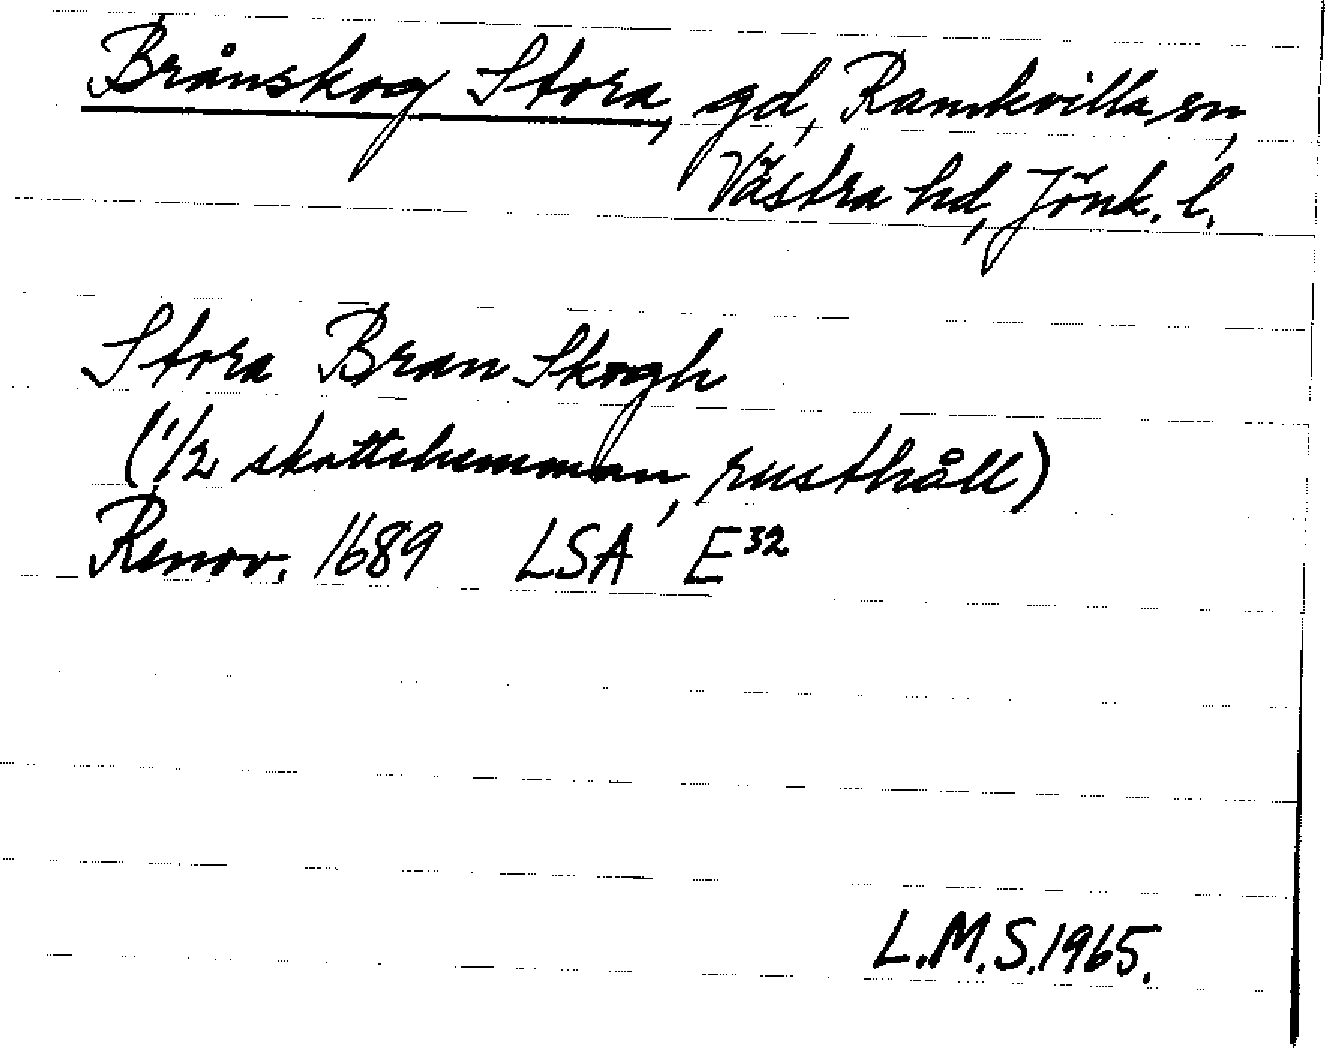 Brånskog Stora, gd, Ramkvilla sn,
Västra hd, Jönk. l.
Stora Bran Skogh
(1/2 skattehemman, rusthåll)
Renov. 1689 LSA E32
L.M.S. 1965.